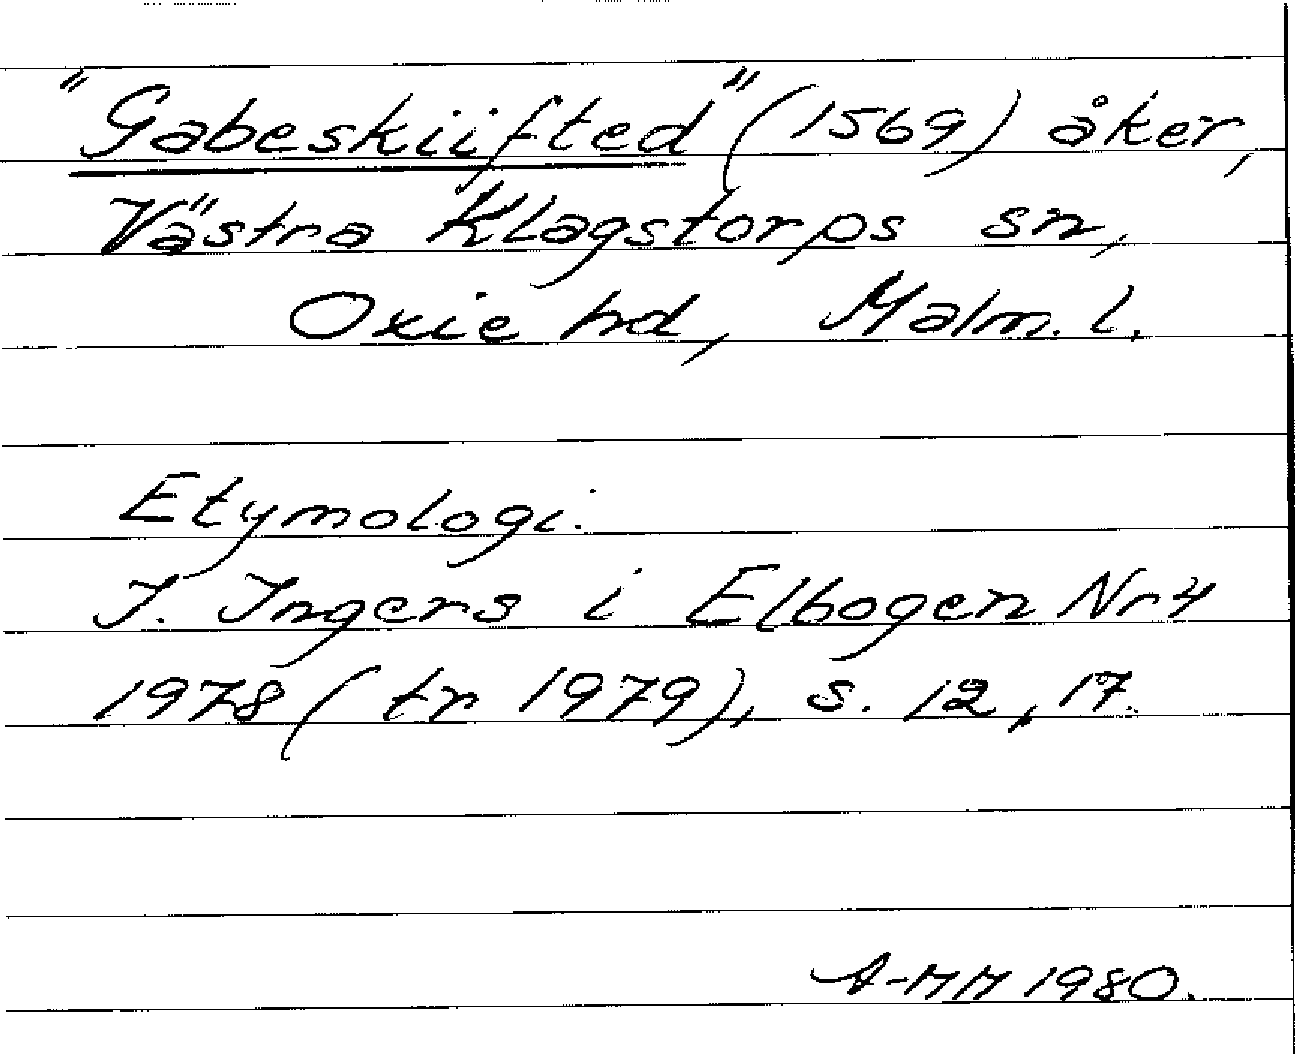 "Gabeskiifted" (1569) åker,
Västra Klagstorps sn,
Oxie hd, Malm. l.
Etymologi.
I. Ingers i Elbogen Nr 4
1978 (tr 1979), s. 12, 17.
A-MM 1980.